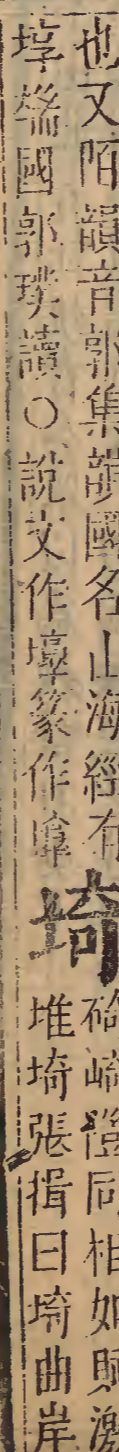 也又陌韻音郭集韻國名山海經有
埻端國郭璞讀○說文作篆作
埼
碕崎隑同相如賦激
堆埼張揖曰埼曲岸